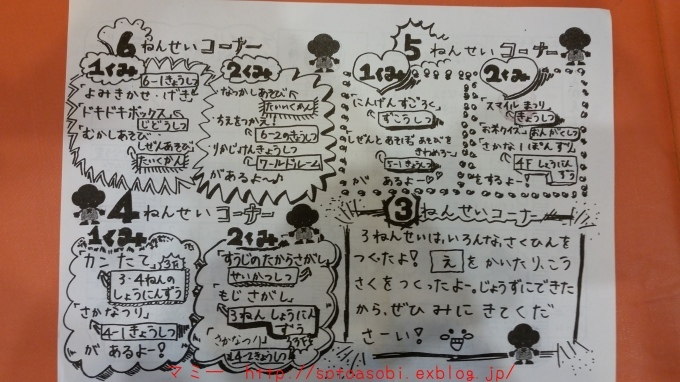 6ねんせいコーナー
1くみ
6-1きょうしつ
「よみきかせ・げき」
ドキドキボックス」
じどうしつ
「むかしあそび・
しぜんあそび」
たいくかん
2くみ
なつかしあそび
たいいくかん
ちえをつかえ!
6-2のきょうしつ
りかじっけんきょうしつ
ワールドルーム
があるよ〜♪
5ねんせいコーナー
1くみ
「にんげんすごろく」
ずこうしつ
しぜんとあそぼ あそびを
きわめろ〜
5-1きょうしつ
が あるよー♡
2くみ
「スマイルまつり
きょうしつ
「お米クイズ」
おんがくしつ
「さかないっぽんずり」
4F しょうにん
ずう
をするよー!
4ねんせいコーナー
1くみ
「カンたて」
3F
3・4ねんの
しょうにんずう
「さかなつり」
4-1きょうしつ
が あるよー!
2くみ
「すうじのたからさがし」
せいかつしつ
「もじさがし」
3ねんしょうにん
ずう
3F
「さかなつり」
4-2きょうしつ
3ねんせいコーナー
3ねんせいは、いろんな、さくひんを
つくったよ! えをかいたり、こう
さくをつくったよー。じょうずにできた
から、ぜひみにきてくだ
さーい!
マミー http://sotoasobi.exblog.jp/